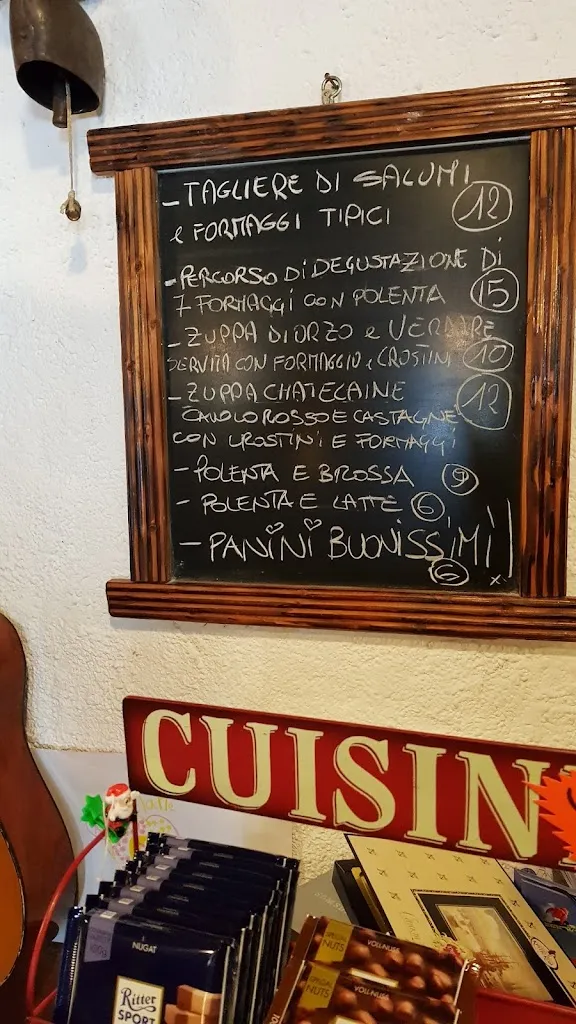 - TAGLIERE DI SALUMI
e FORMAGGI TIPICI 12
- PERCORSO DI DEGUSTAZIONE DI
7 FORMAGGI CON POLENTA 15
- ZUPPA DI ORZO e VERDURE
SERVITA CON FORMAGGIO e CROSTINI 10
- ZUPPA CHATELAINE 12
CAVOLO ROSSO E CASTAGNE
CON CROSTINI E FORMAGGI
- POLENTA E BROSSA 9
- POLENTA E LATTE 6
- PANINI BUONISSIMI
6
x
CUISIN
NUGAT
Ritter
SPORT
SPECIAL
NUTS
VOLL-NUSS
SPECIAL
NUTS
VOLL-NUSS